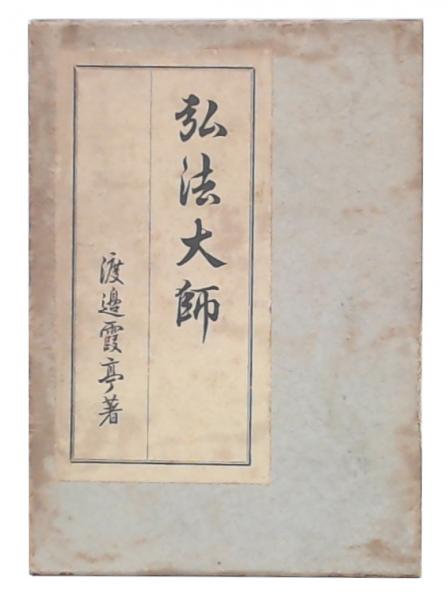 弘法大師
渡邊霞亭著